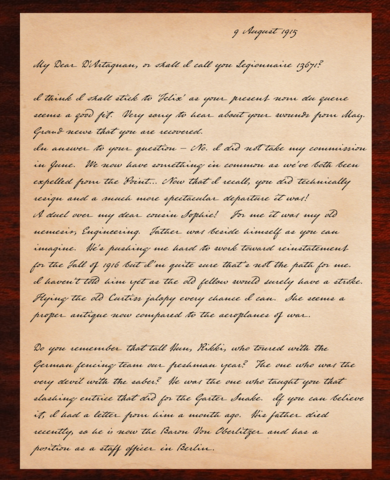 9 August 1915
My Dear D'Artagnan, or shall I call you Legionnaire 13671?
I think I shall stick to 'Felix' as your present nom du guere
seems a good fit. Very sorry to hear about your wounds from May.
Grand news that you are recovered.
In answer to your question – No. I did not take my commission
in June. We now have something in common as we've both been
expelled from the Point... Now that I recall, you did technically
resign and a much more spectacular departure it was!
A duel over my dear cousin Sophie! For me it was my old
nemesis, Engineering. Father was beside himself as you can
imagine. He's pushing me hard to work toward reinstatement
for the Fall of 1916 but I'm quite sure that's not the path for me.
I haven't told him yet as the old fellow would surely have a stroke.
Flying the old Curtiss jalopy every chance I can. She seems a
proper antique now compared to the aeroplanes of war...
Do you remember that tall Hun, Nikki, who toured with the
German fencing team our freshman year? The one who was the
very devil with the saber? He was the one who taught you that
slashing entrice that did for the Garter Snake. If you can believe
it, I had a letter from him a month ago. His father died
recently, so he is now the Baron Von Oberlitzer and has a
position as a staff officer in Berlin..